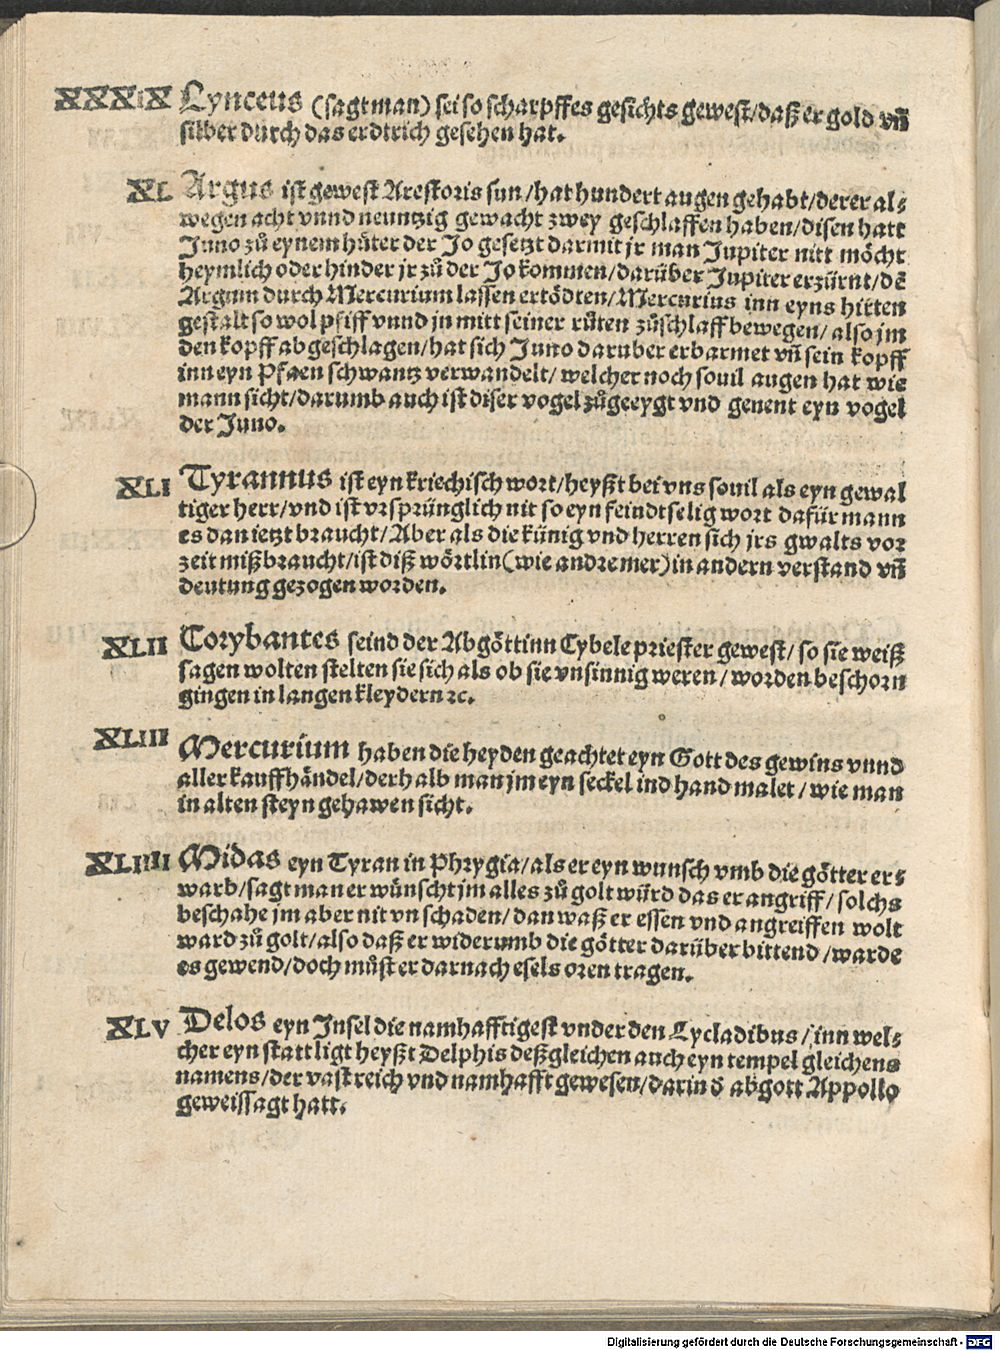 XXXIX Lynceus (sagt man) sei so scharpffes gesichts gewest/daß er gold vñ
silber durch das erdtrich gesehen hat.
XL Argus ist gewest Arestoris sun/hat hundert augen gehabt/derer al⸗
wegen acht vnnd neuntzig gewacht zwey geschlaffen haben/disen hatt
Juno zů eynem hüter der Jo gesetzt darmit jr man Jupiter nitt möcht
heymlich oder hinder jr zů der Jo kommen/darüber Jupiter erzürnt/dē
Argum durch Mercurium lassen ertödten/Mercurius inn eyns hirten
gestalt so wol pfiff vnnd jn mitt seiner růten zůschlaff bewegen/also jm
den kopff abgeschlagen/hat sich Juno daruber erbarmet vñ sein kopff
inn eyn Pfaen schwantz verwandelt/welcher noch souil augen hat wie
mann sicht/darumb auch ist diser vogel zůgeeygt vnd genent eyn vogel
der Juno.
XLI Tyrannus ist eyn kriechisch wort/heyßt bei vns souil als eyn gewal
tiger herr/vnd ist vrsprünglich nit so eyn feindtselig wort dafür mann
es dan ietzt braucht/Aber als die künig vnd herren sich jrs gwalts vor
zeit mißbraucht/ist diß wörtlin(wie andre mer)in andern verstand vñ
deutung gezogen worden.
XLII Corybantes seind der Abgöttinn Cybele priester gewest/so sie weiß
sagen wolten stelten sie sich als ob sie vnsinnig weren/worden beschorn
gingen in langen kleydern ꝛc.
XLIII Mercurium haben die heyden geachtet eyn Gott des gewins vnnd
aller kauffhändel/derhalb man jm eyn seckel ind hand malet/wie man
in alten steyn gehawen sicht.
XLIIII Midas eyn Tyran in Phrygia/als er eyn wunsch vmb die götter er⸗
warb/sagt man er wünscht jm alles zů golt würd das er angriff/solchs
beschahe jm aber nit vn schaden/dan waß er essen vnd angreiffen wolt
ward zů golt/also daß er widerumb die götter darüber bittend/warde
es gewend/doch můst er darnach esels oren tragen.
XLV Delos eyn Insel die namhafftigest vnder den Cycladibus/inn wel⸗
cher eyn statt ligt heyßt Delphis deßgleichen auch eyn tempel gleichens
namens/der vast reich vnd namhafft gewesen/darin ď abgott Appollo
geweissagt hatt.
Digitalisierung gefördert durch die Deutsche Forschungsgemeinschaft - DFG